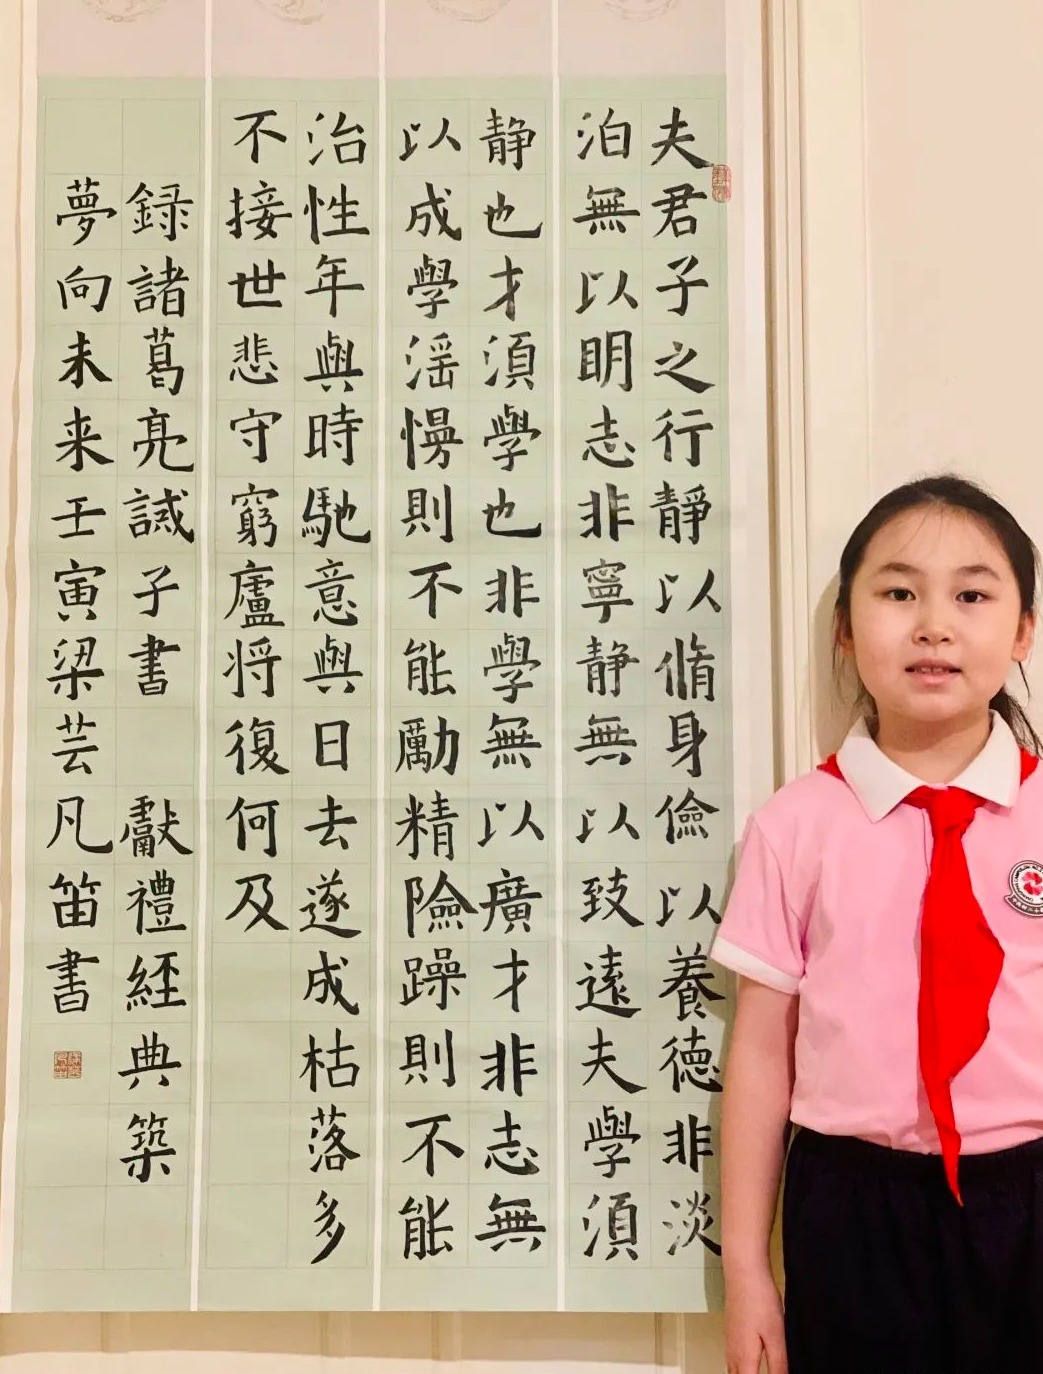 夫君子之行靜以脩身儉以養德非淡
泊無以明志非寧静無以致遠夫學須
静也才須學也非學無以廣才非志無
以成學滛慢則不能勵精險躁則不能
治性年與時馳意與日去遂成枯落多
不接世悲守窮廬将復何及
録諸葛亮誡子書 獻禮經典築
夢向未来壬寅梁芸凡笛書